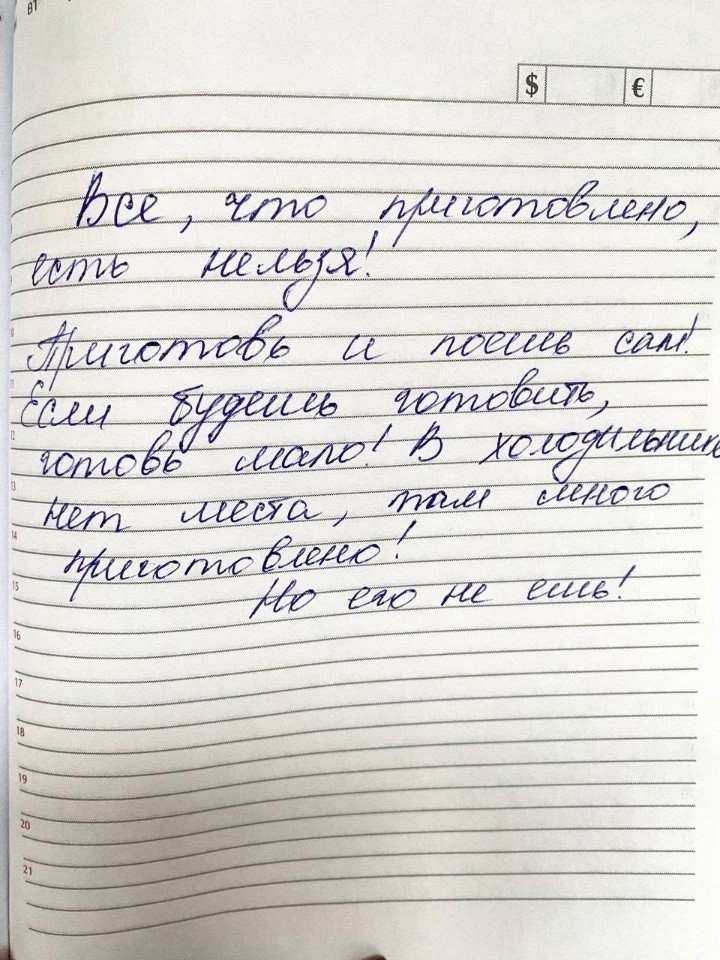 В1
$ €
Все, что приготовлено,
есть нельзя!
Приготовь и поешь сам!
Если будешь готовить,
готовь мало! В холодильнике
нет места, там много
приготовлено!
Но его не ешь!
10
11
12
13
14
15
16
17
18
19
20
21